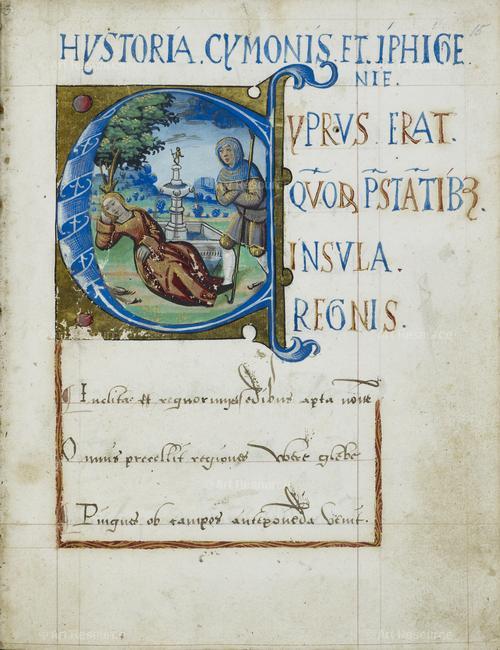 15
HYSTORIA. CYMONIS. ET. IPHIGE
NIE.
CYPRVS ERAT.
QVOR P̄STĀTIBZ
INSVLA.
REGNIS.
Inclita et regnorum sedibus apta
Omnis precellit regiones glebe
Pingues ob campos anteponeda venit.
Art Resource